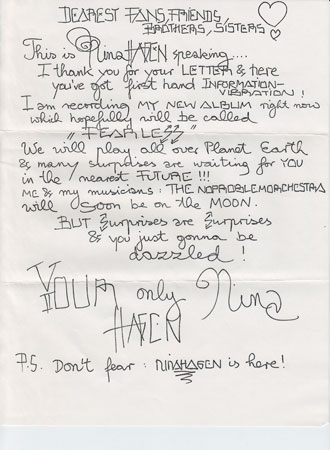 DEAREST FANS, FRIENDS,
BROTHERS, SISTERS
This is Nina HAGEN speaking....
I thank you for your LETTER & here
you've got first hand INFORMATION-
VIBRYATION!
I am recording MY NEW ALBUM right now
which hopefully will be called
"FEARLESS"
We will play all over Planet Earth
& many surprises are waiting for YOU
in the nearest FUTURE!!!
ME & my musicians: THE NOPROBLEMORCHESTRA
will soon be on the MOON.
BUT Surprises are Surprises
& you just gonna be
dazzled!
YOUR only Nina
HAGEN
P.S. Don't fear: NINAHAGEN is here!